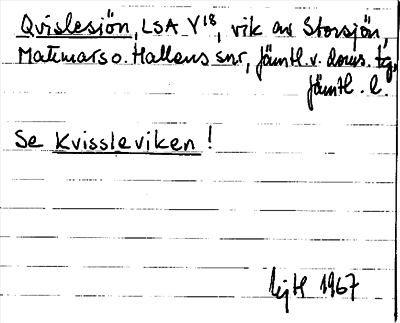 Qvislesjön, LSA Y18, vik av Storsjön,
Mattmars o. Hallens snr, Jämtl. v. doms. tg,
Jämtl. l.
Se Kvissleviken!
1967